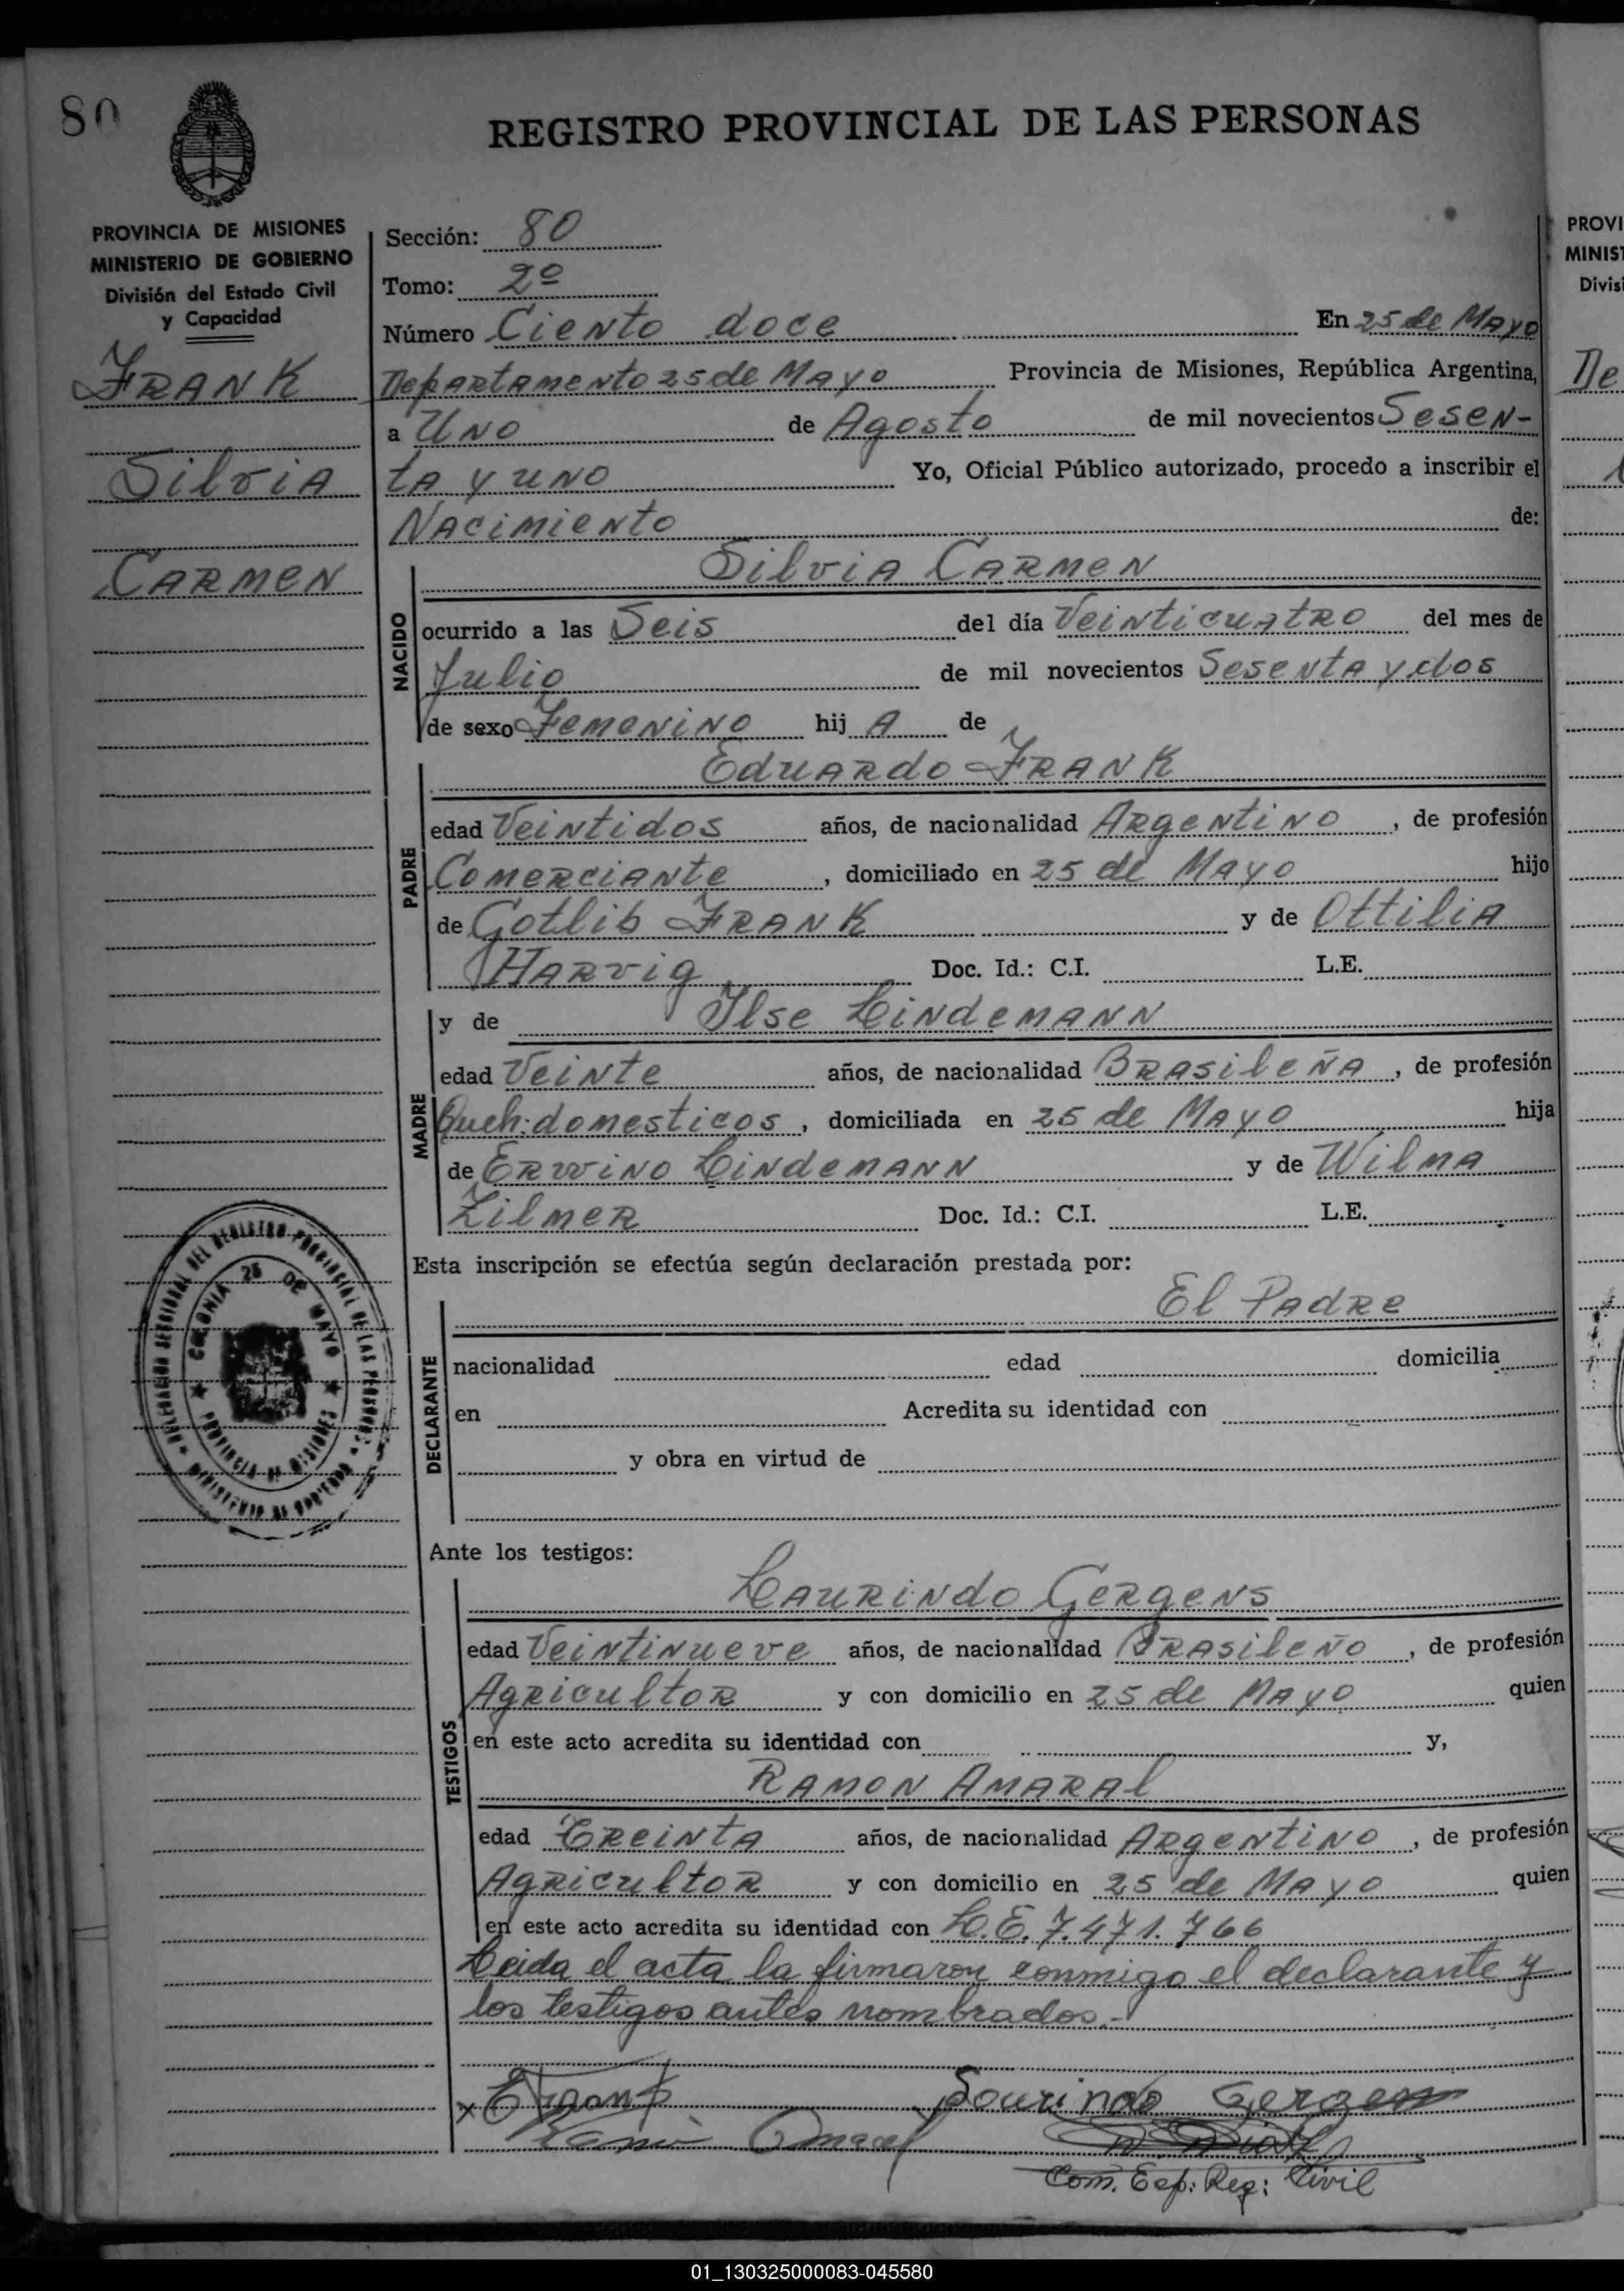 80
REGISTRO PROVINCIAL DE LAS PERSONAS
PROVINCIA DE MISIONES
MINISTERIO DE GOBIERNO
División del Estado Civil
y Capacidad
FRANK
Silvia
CARMEN
Sección: 80
Tomo: 2º
Número Ciento doce En 25 de Mayo
Departamento 25 de Mayo Provincia de Misiones, República Argentina,
a Uno de Agosto de mil novecientos Sesen-
ta y uno Yo, Oficial Público autorizado, procedo a inscribir el
Nacimiento de:
Silvia Carmen
NACIDO
ocurrido a las Seis del día Veinticuatro del mes de
Julio de mil novecientos Sesenta y dos
de sexo Femenino hij A de
Eduardo FRANK
PADRE
edad Veintidos años, de nacionalidad Argentino, de profesión
Comerciante, domiciliado en 25 de Mayo hijo
de Gotlib FRANK y de Ottilia
Harvig Doc. Id.: C.I. L.E.
y de Ilse Lindemann
MADRE
edad Veinte años, de nacionalidad Brasileña, de profesión
Queh: domesticos, domiciliada en 25 de Mayo hija
de Erwino Lindemann y de Wilma
Zilmer Doc. Id.: C.I. L.E.
Esta inscripción se efectúa según declaración prestada por:
El Padre
DECLARANTE
nacionalidad edad domicilia
en Acredita su identidad con
y obra en virtud de
DELEGACION SECCIONAL DEL REGISTRO PROVINCIAL DE LAS PERSONAS
MINISTERIO DE GOBIERNO
COLONIA 25 DE MAYO
PROVINCIA DE MISIONES
Ante los testigos:
Laurindo Gergens
TESTIGOS
edad Veintinueve años, de nacionalidad Brasileño, de profesión
Agricultor y con domicilio en 25 de Mayo quien
en este acto acredita su identidad con y,
Ramon Amaral
edad Treinta años, de nacionalidad Argentino, de profesión
Agricultor y con domicilio en 25 de Mayo quien
en este acto acredita su identidad con L.E. 7.471.766
Leida el acta la firmaron conmigo el declarante y
los testigos antes nombrados.-
x EFrank
Lourindo Gergens
Ramon Amaral
Com. Esp: Reg: Civil
PROVI
MINIST
Divisi
De
01_130325000083-045580